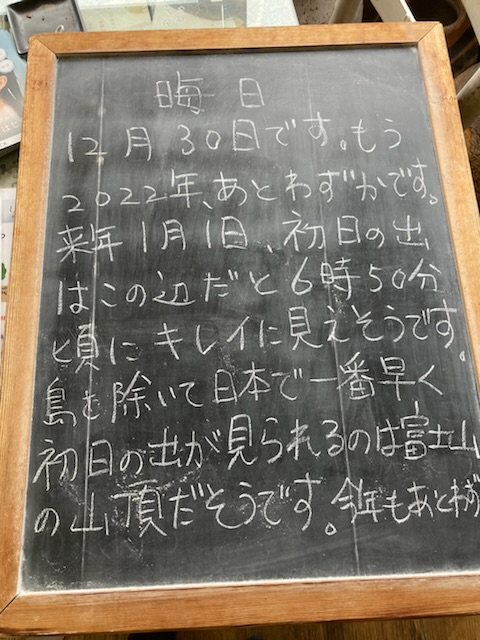 晦日
12月30日です。もう
2022年、あとわずかです。
来年1月1日、初日の出
はこの辺だと6時50分
頃にキレイに見えそうです。
島を除いて日本で一番早く
初日の出が見られるのは富士山
の山頂だそうです。今年もあとわず